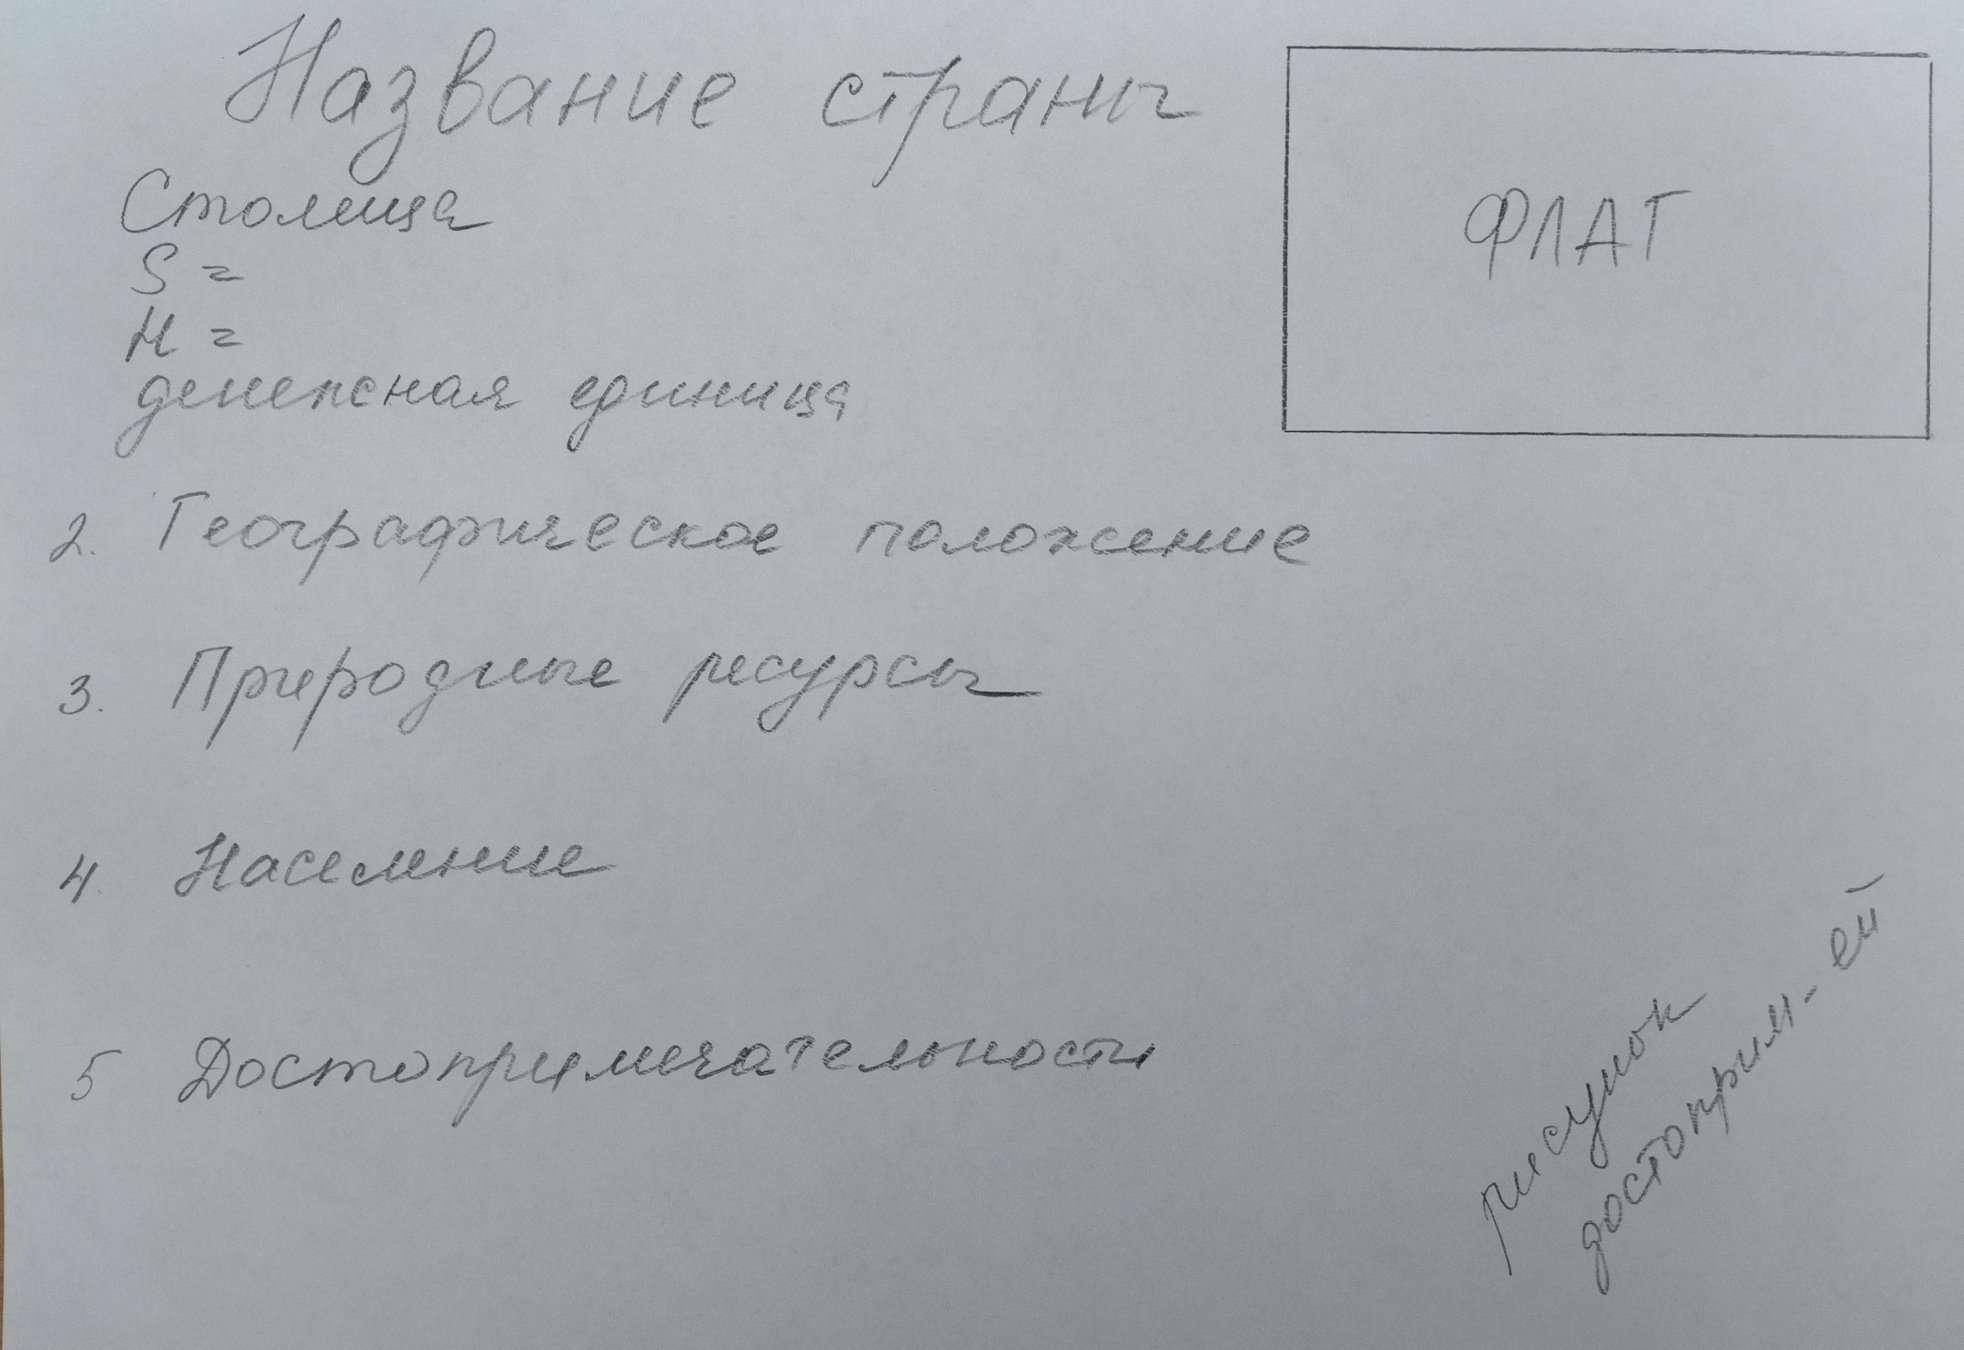 Название страны
ФЛАГ
Столица
S =
Н =
денежная единица
2. Географическое положение
3. Природные ресурсы
4. Население
5 Достопримечательности
рисунок
достоприм-ей